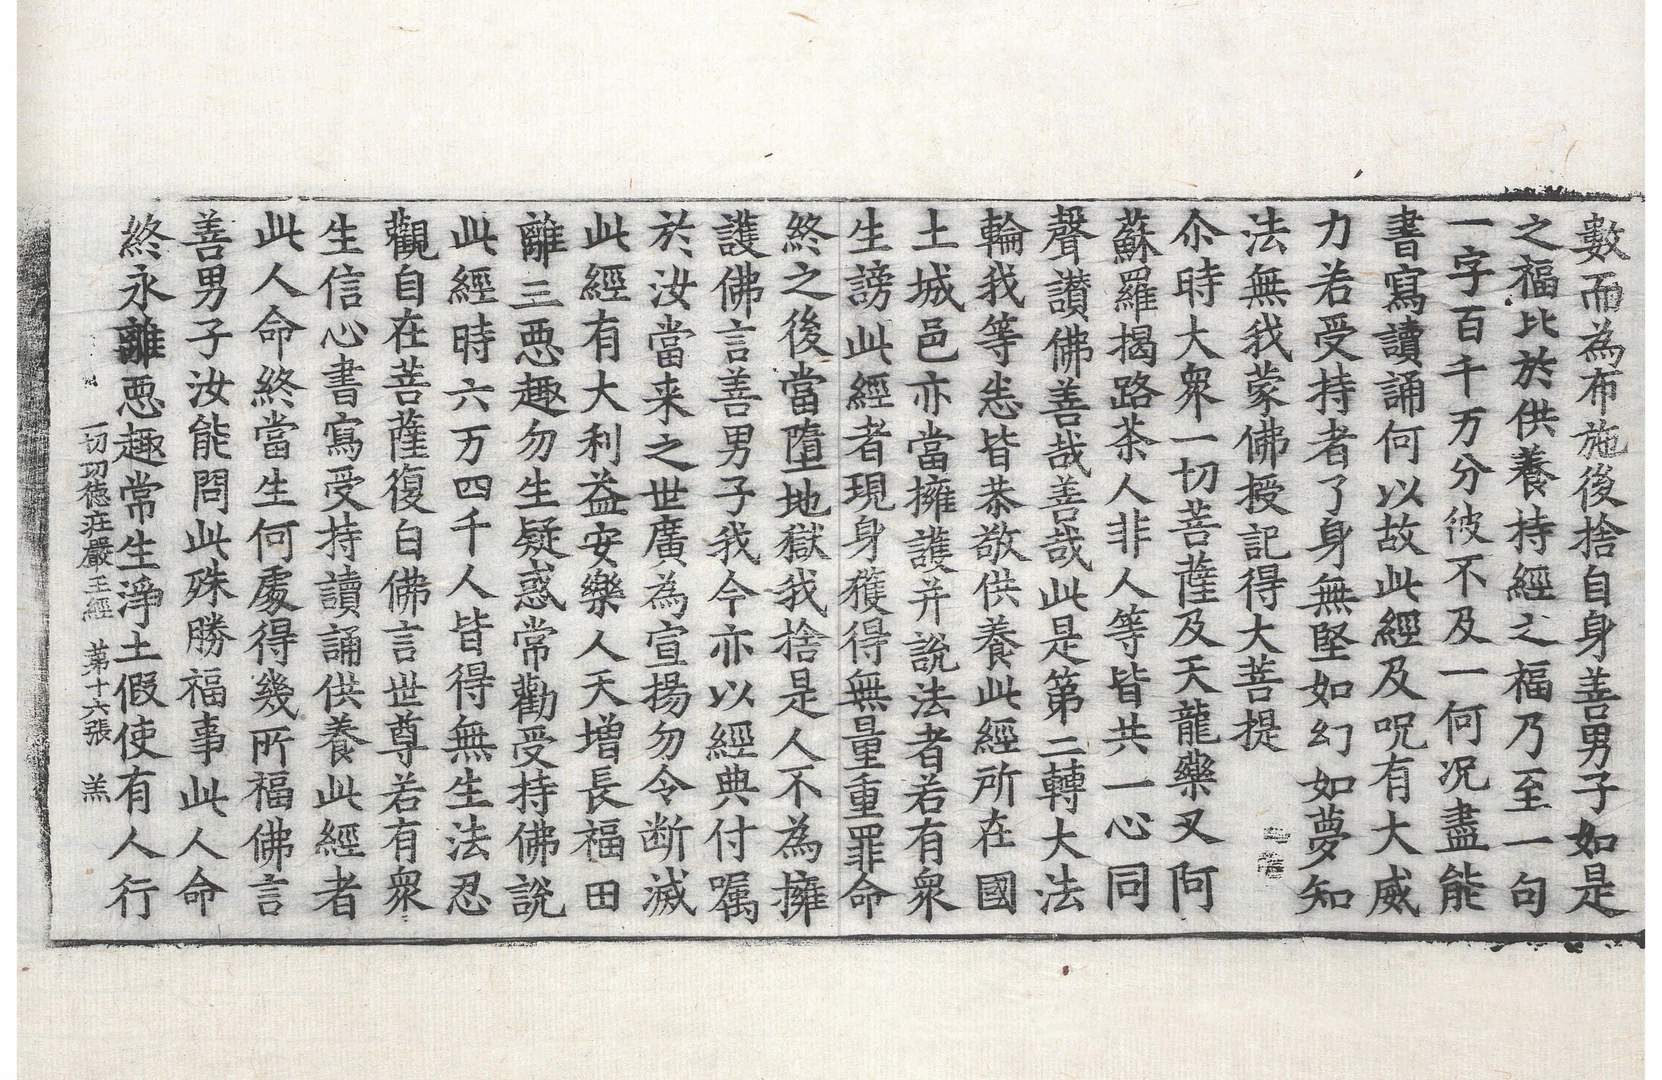 數而為布施後捨自身善男子如是
之福比於供養持經之福乃至一句
一字百千万分彼不及一何況盡能
書寫讀誦何以故此經及呪有大威
力若受持者了身無堅如幻如夢知
法無我蒙佛授記得大菩提
尒時大衆一切菩薩及天龍藥叉阿
蘇羅揭路荼人非人等皆共一心同
聲讃佛善哉善哉此是第二轉大法
輪我等悉皆恭敬供養此經所在國
土城邑亦當擁護并說法者若有衆
生謗此經者現身獲得無量重罪命
終之後當墮地獄我捨是人不為擁
護佛言善男子我今亦以經典付嘱
於汝當来之世廣為宣揚勿令断滅
此經有大利益安樂人天增長福田
離三悪趣勿生疑惑常勸受持佛說
此經時六万四千人皆得無生法忍
觀自在菩薩復白佛言世尊若有衆
生信心書寫受持讀誦供養此經者
此人命終當生何處得幾所福佛言
善男子汝能問此殊勝福事此人命
終永離悪趣常生淨土假使有人行
一切功德莊嚴王經 第十六張 羔